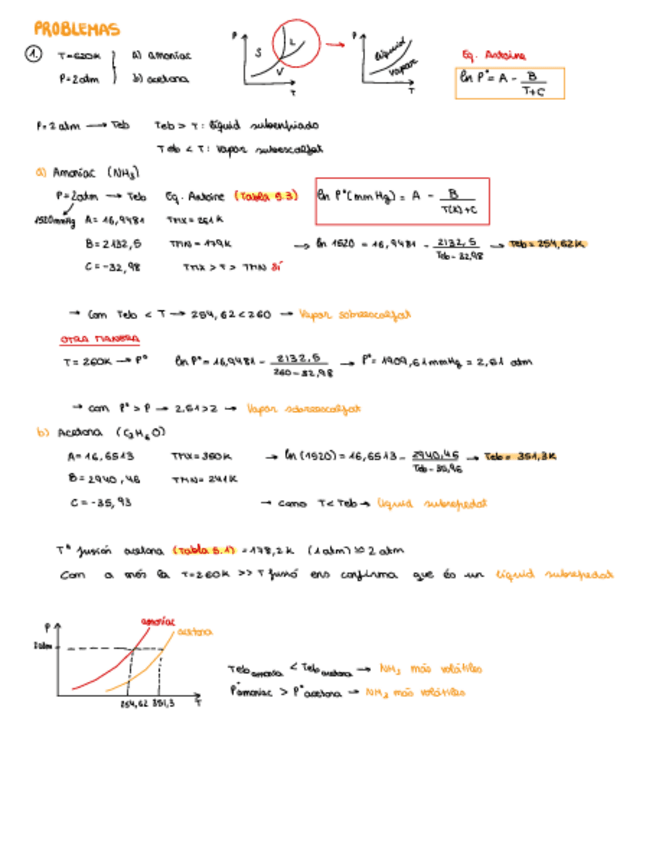 PROBLEMAS
1. T=620K a) amoníac
P=2atm b) acetona
P S L V T
P líquid vapor T
Eq. Antoine
ln P° = A - B / T+C
P=2 atm → Teb Teb > T: líquid subrefredado
Teb < T: vapor sobreescalfat
a) Amoníac (NH3)
P=2atm → Teb Eq. Antoine (Tabla 5.3) ln P°(mmHg) = A - B / T(K)+C
1520mmHg A = 16,9481 TMX = 261K
B = 2132,5 TMN = 179K → ln 1520 = 16,9481 - 2132,5 / Teb-32,98 → Teb = 254,62K
C = -32,98 TMX > T > TMN SÍ
→ Com Teb < T → 254,62 < 260 → Vapor sobreescalfat
OTRA MANERA
T = 260K → P° ln P° = 16,9481 - 2132,5 / 260-32,98 → P° = 1909,61mmHg = 2,51 atm
→ com P° > P → 2,51 > 2 → Vapor sobreescalfat
b) Acetona (C3H6O)
A = 16,6513 TMX = 350K → ln (1520) = 16,6513 - 2940,46 / Teb-35,93 → Teb = 351,3K
B = 2940,46 TMN = 241K
C = -35,93 → como T < Teb → líquid subrefredat
Tª fusión acetona (Tabla 5.1) = 178,2K (1atm) ≈ 2 atm
Com a més la T=260K >> T fusió ens confirma que és un líquid subrefredat
P amoníac acetona
2atm
254,62 351,3 T
Teb amoníac < Teb acetona → NH3 más volátiles
P° amoníac > P° acetona → NH3 más volátiles